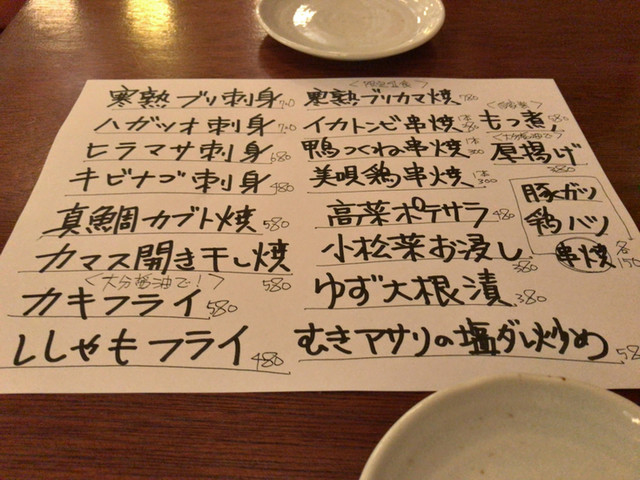 寒熟ブリ刺身
ハガツオ刺身
ヒラマサ刺身 680
キビナゴ刺身 480
真鯛カブト焼 580
カマス開き干し焼 580
<大分醤油で!>
カキフライ 580
ししゃもフライ 480
寒熟ブリカマ焼
イカトンビ串焼 1本
鴨つくね串焼 1本 300
美唄鶏串焼 1本 300
高菜ポテサラ 480
小松菜お浸し 380
ゆず大根漬 380
むきアサリの塩ダレ炒め
もつ煮
<大分醤油で>
厚揚げ
豚ガツ
鶏ハツ
串焼 各150